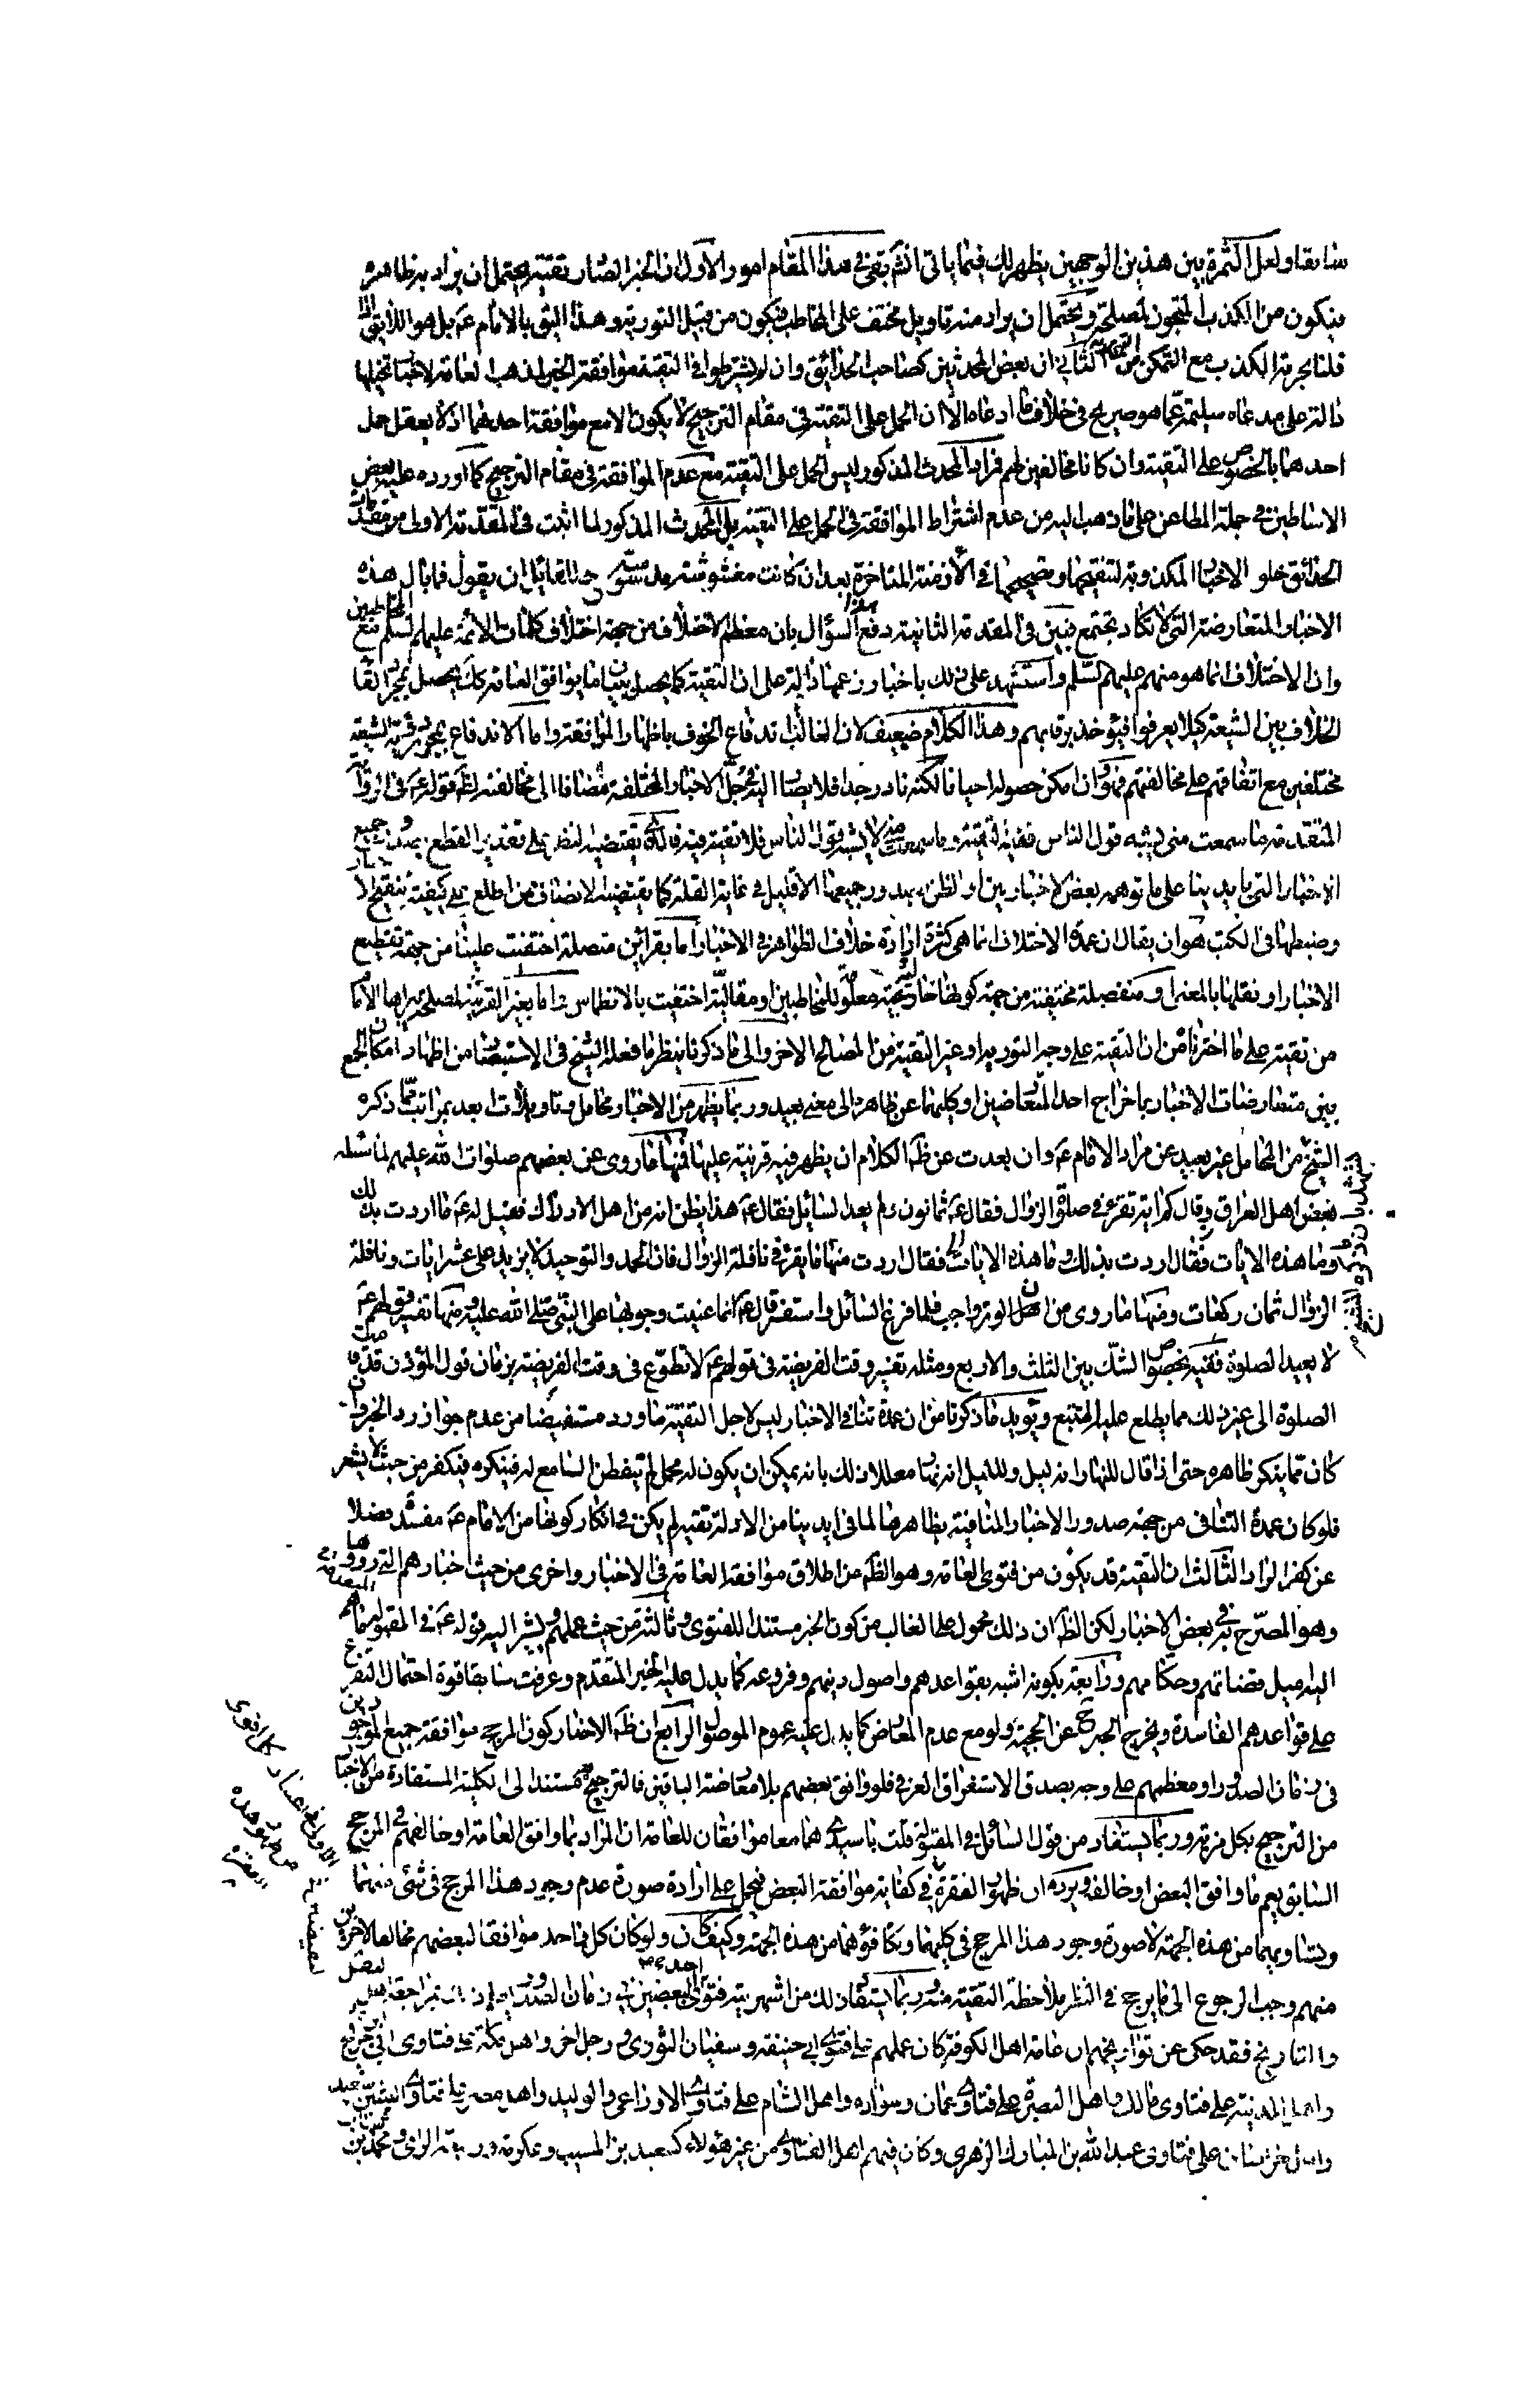 سابقا ولعل الثمرة بين هذين الوجهين يظهر لك فيما ياتى انش بقى في هذا المقام امور الاول ان الخبر الصادر تقية يحتمل ان يراد به ظاهره
فيكون من الكذب المجوز لمصلحة ويحتمل ان يراد منه تاويل مختف على المخاطب فيكون من قبيل التورية وهذا اليق بالامام عه بل هو اللايق اذا
قلنا بحرمة الكذب مع التمكن من التورية الثاني ان بعض المحدثين كصاحب الحدائق وان لم يشترطوا في التقية موافقة الخبر لمذهب العامة لاخبار تخيلها
دالة على مدعاه سليمة عما هو صريح في خلاف ما ادعاه الا ان الحمل على التقية في مقام الترجيح لا يكون الا مع موافقة احدهما اذ لا يعقل حمل
احدهما بالخصوص على التقية وان كانا مخالفين لهم فمراد المحدث المذكور ليس الحمل على التقية مع عدم الموافقة في مقام الترجيح كما اورده عليه بعض
الاساطين في جملة المطاعن على ما ذهب اليه من عدم اشتراط الموافقة في الحمل على التقية بل المحدث المذكور لما اثبت في المقدمة الاولى من مقدمات
الحدائق خلو الاخبار عن المكذوبة لتنقيحها وتصحيحها في الازمنة المتاخرة بعد ان كانت مغشوشة مدسوسة صح للقائل ان يقول فما بال هذه
الاخبار المتعارضة التي لا تكاد تجتمع فبين في المقدمة الثانية دفع هذا السؤال بان معظم الاختلاف من جهة اختلاف كلمات الائمة عليهم السلم مع المخاطبين
وان الاختلاف انما هو منهم عليهم السلم واستشهد على ذلك باخبار زعمها دالة على ان التقية كما يحصل ببيان ما يوافق العامة كك يحصل بمجرد القاء
الخلاف بين الشيعة كيلا يعرفوا فيؤخذ برقابهم وهذا الكلام ضعيف لان الغالب اندفاع الخوف باظهار الموافقة واما الاندفاع بمجرد رؤية الشيعة
مختلفين مع اتفاقهم على مخالفتهم فهو وان امكن حصوله احيانا لكنه نادر جدا فلا يصار اليه في جل الاخبار المختلفة مضافا الى مخالفته لظ قوله عه في الرواية
المتقدمة ما سمعت منى يشبه قول الناس ففيه التقية وما سمعت منى لا يشبه قول الناس فلا تقية فيه فالذى يقتضيه النظر على تقدير القطع بصدور جميع
الاخبار التي بايدينا على ما توهمه بعض الاخباريين او الظن بصدور جميعها الا قليل في غاية القلة كما يقتضيه الانصاف ممن اطلع على كيفية تنقيح الاخبار
وضبطها في الكتب هو ان يقال ان عمدة الاختلاف انما هى كثرة ارادة خلاف الظواهر في الاخبار اما بقرائن متصلة اختفت علينا من جهة تقطيع
الاخبار او نقلها بالمعنى او منفصلة مختفية من جهة كونها حالية معلومة للمخاطبين او مقالية اختفيت بالانطماس واما بغير القرينة لمصلحة يراها الامام
من تقية على ما اخترناه من ان التقية على وجه التورية او غير التقية من المصالح الاخر والى ما ذكرنا ينظر ما فعله الشيخ في الاستبصار من اظهار امكان الجمع
بين متعارضات الاخبار باخراج احد المتعارضين او كليهما عن ظاهره الى معنى بعيد وربما يظهر من الاخبار محامل وتاويلات ابعد بمراتب مما ذكره
الشيخ من المحامل غير بعيد عن مراد الامام عه وان بعدت عن ظه الكلام ان يظهر فيه قرينة عليها فمنها ما روى عن بعضهم صلوات الله عليهم لما سئله
بعض اهل العراق وقال كم اية تقرء في صلوة الزوال فقال عه ثمانون ولم يعد السائل فقال عه هذا يظن انه من اهل الادراك فقيل له عه ما اردت بذلك
وما هذه الايات فقال اردت بذلك وما هذه الايات فقال اردت منها ما يقرء في نافلة الزوال فان الحمد والتوحيد لا يزيد على عشر ايات ونافلة
الزوال ثمان ركعات ومنها ما روى من ان الوتر واجب فلما فرغ السائل واستفسر قال عه انما عنيت وجوبها على النبي صلى الله عليه ومنها تفسير قولهم عه
لا يعيد الصلوة فقيه بخصوص الشك بين الثلث والاربع ومثله تفسير وقت الفريضة في قولهم عه لا تطوع في وقت الفريضة بزمان قول المؤذن قد قامت
الصلوة الى غير ذلك مما يطلع عليه المتتبع ويؤيد ما ذكرنا من ان عمدة تنافى الاخبار ليس لاجل التقية ما ورد مستفيضا من عدم جواز رد الخبر وان
كان مما ينكر ظاهره حتى اذا قال للنهار انه ليل ولليل انه نهار معللا ذلك بانه يمكن ان يكون له محمل لم يتفطن السامع له فينكره فيكفر من حيث لا يشعر
فلو كان عمدة التنافى من جهة صدور الاخبار المنافية بظاهرها لما في ايدينا من الادلة تقية لم يكن في انكار كونها من الامام عه مفسدة فضلا
عن كفر الراد الثالث ان التقية قد يكون من فتوى العامة وهو الظه من اطلاق موافقة العامة في الاخبار واخرى من حيث اخبارهم التي رووها
وهو المصرح به في بعض الاخبار لكن الظه ان ذلك محمول على الغالب من كون الخبر مستندا للفتوى وثالثة من حيث عملهم ويشير اليه قوله عه في المقبولة المتقدمة ما هم
اليه اميل قضاتهم وحكامهم ورابعة بكونه اشبه بقواعدهم واصول دينهم وفروعه كما يدل عليه الخبر المتقدم وعرفت سابقا قوة احتمال التفرع
على قواعدهم الفاسدة ويخرج الخبر ح عن الحجية ولو مع عدم المعارض كما يدل عليه عموم الموصول الرابع ان ظه الاخبار كون المرجح موافقة جميع الموجودين
في زمان الصدور او معظمهم على وجه يصدق الاستغراق العرفي فلو وافق بعضهم بلا معارضة الباقين فالترجيح به مستندا الى الكلية المستفادة من الاخبار
من الترجيح بكل مزية وربما يستفاد من قول السائل في المقبولة قلت يا سيدى هما معا موافقان للعامة ان المراد بما وافق العامة او خالفهم في المرجح
السابق يعم ما وافق البعض او خالفه ويرده ان ظهور الفقرة في كفاية موافقة البعض فيحمل على ارادة صورة عدم وجود هذا المرجح في شئ منهما
وتساويهما من هذه الجهة لا صورة وجود هذا المرجح في كليهما وتكافؤهما من هذه الجهة وكيف كان ولو كان كل واحد موافقا لبعضهم مخالفا لاخرين
منهم وجب الرجوع الى ما يرجح في النظر ملاحظة التقية منه وربما يستفاد ذلك من اشهرية فتوى احد البعضين في زمان الصدور
والتاريخ فقد حكى عن تواريخهم ان عامة اهل الكوفة كان عملهم على فتوى ابي حنيفة وسفيان الثورى ورجل اخر واهل مكة على فتاوى ابن جريح
واهل المدينة على فتاوى مالك واهل البصرة على فتاوى عثمان وسواده واهل الشام على فتاوى الاوزاعى والوليد واهل مصر على فتاوى الليث بن سعيد
واهل خراسان على فتاوى عبد الله بن المبارك الزهرى وكان فيهم اهل الفتاوى من غير هؤلاء كسعيد بن المسيب وعكرمة وربيعة الراى ومحمد بن